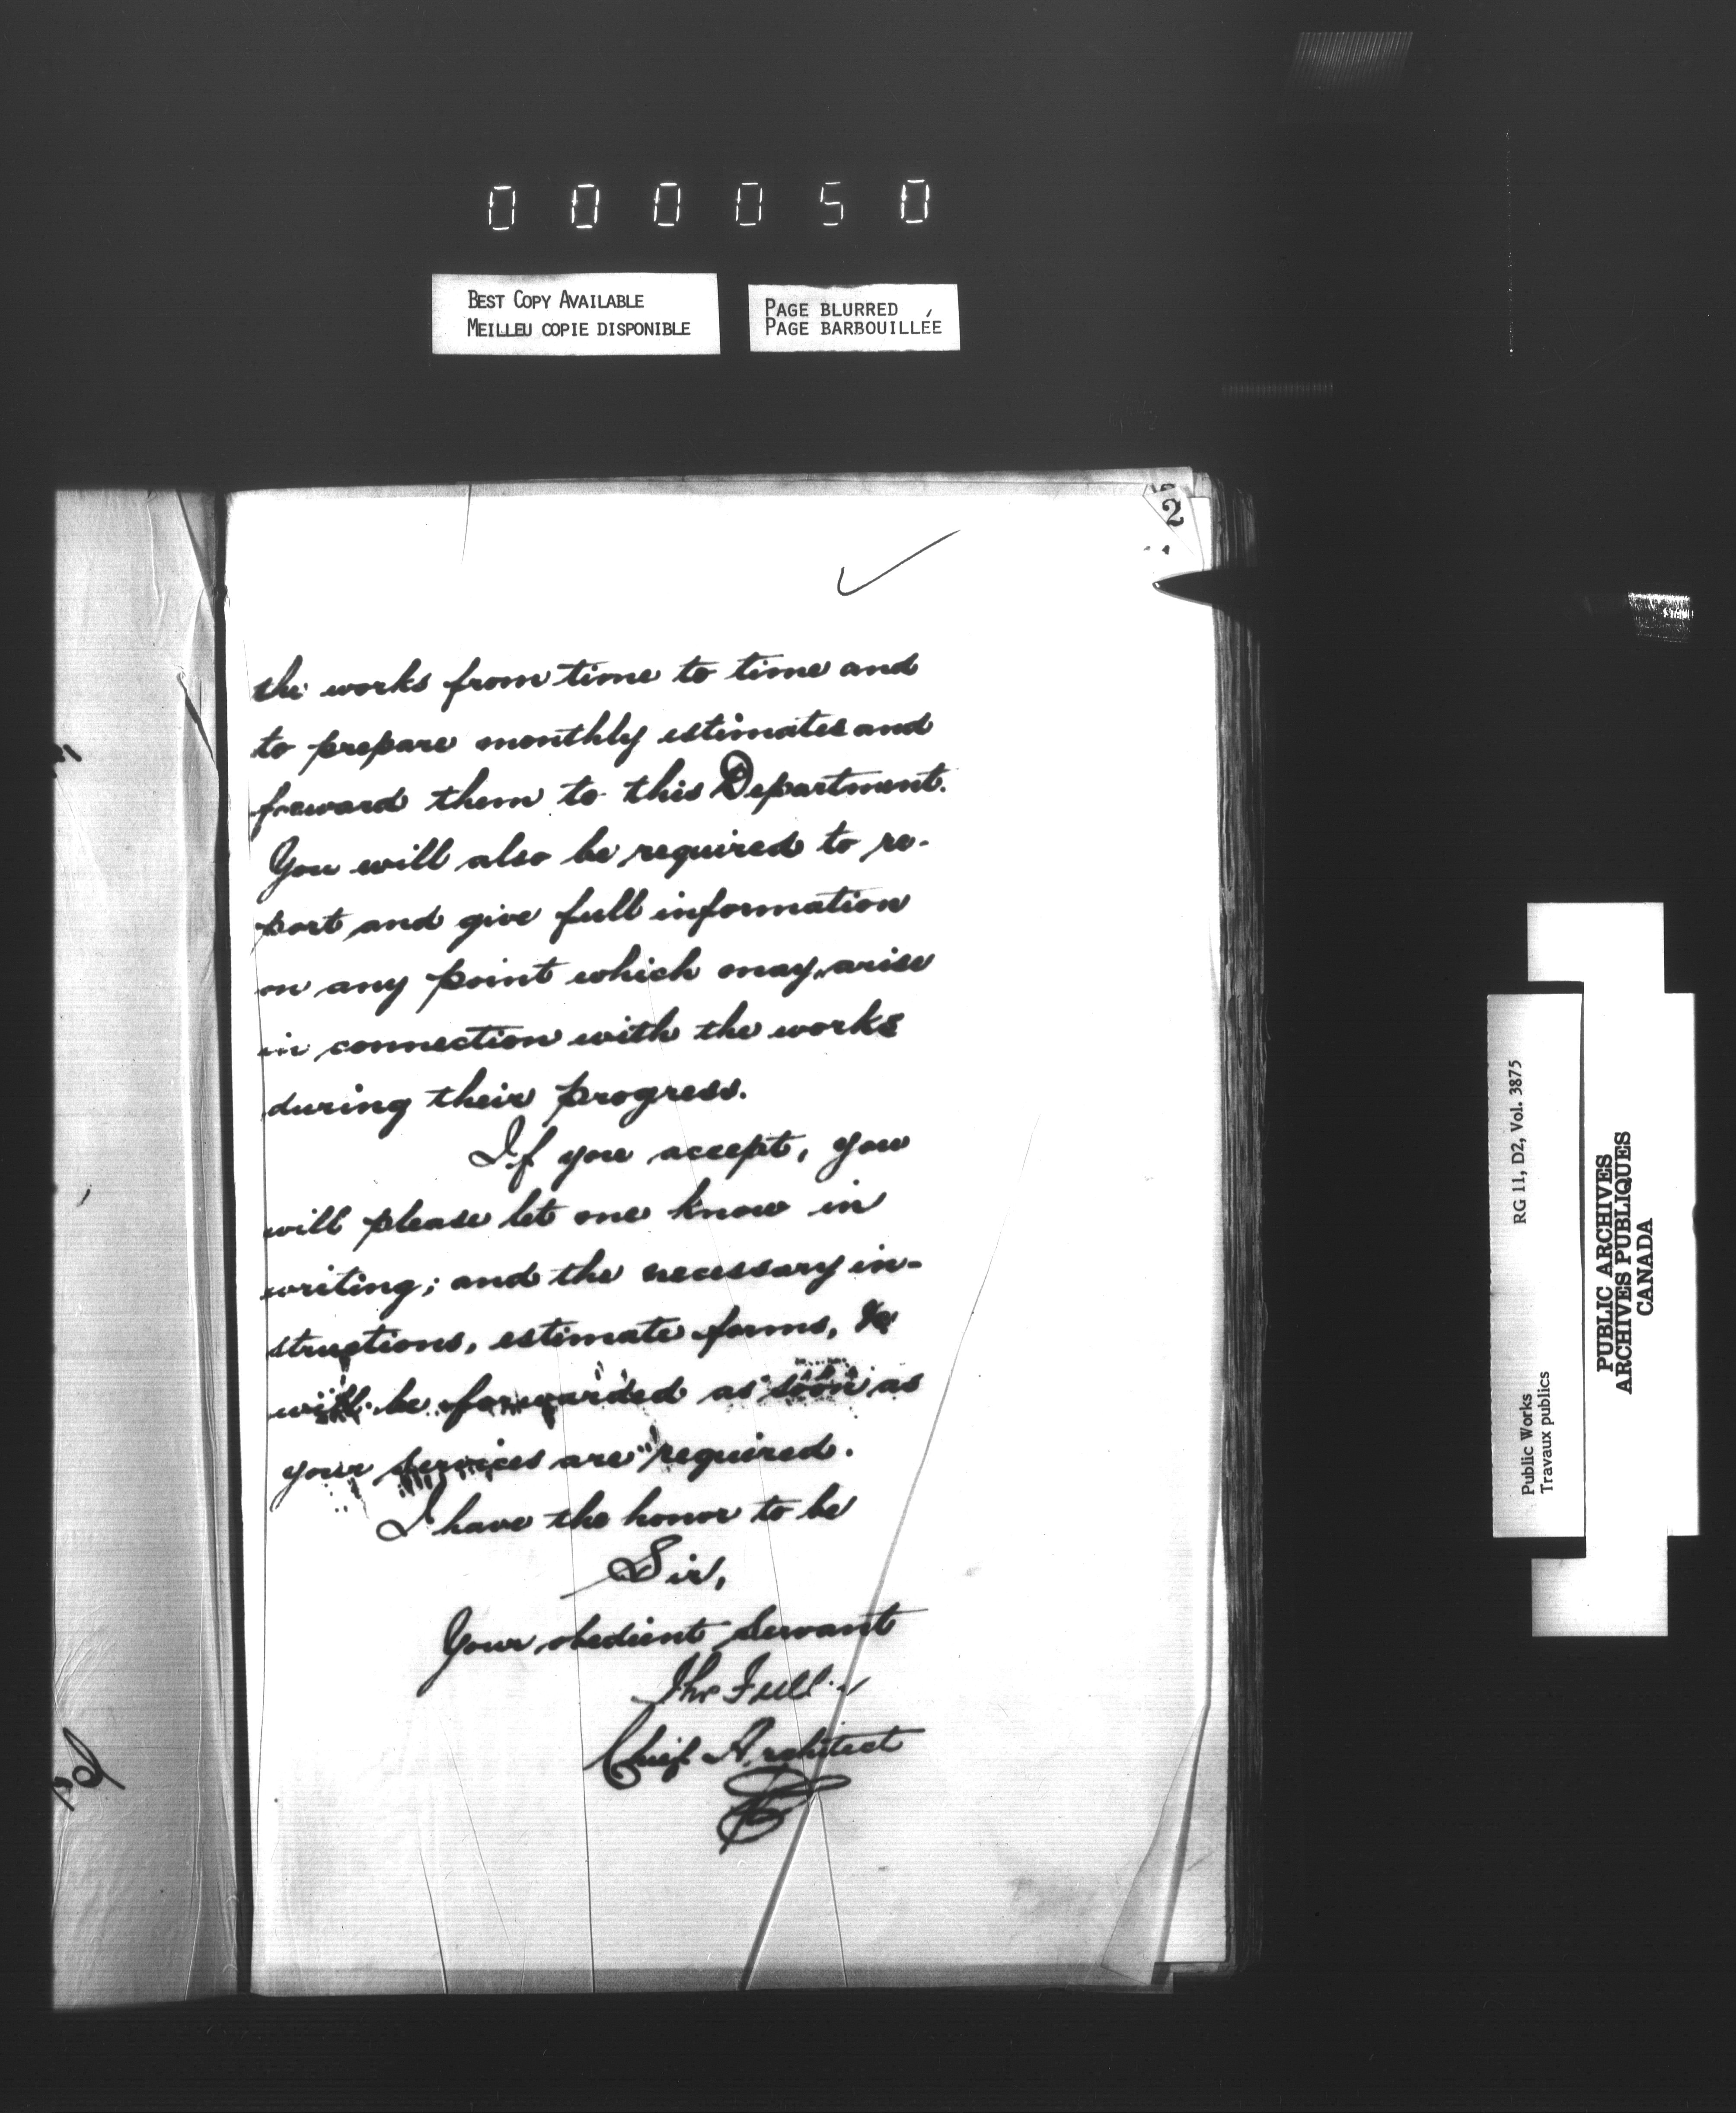 000050
BEST COPY AVAILABLE
MEILLEU COPIE DISPONIBLE
PAGE BLURRED
PAGE BARBOUILLÉE
2
the works from time to time and
to prepare monthly estimates and
forward them to this Department.
You will also be required to re-
port and give full information
on any point which may arise
in connection with the works
during their progress.
If you accept, you
will please let me know in
writing; and the necessary in-
structions, estimate forms, &c
will be forwarded as soon as
your services are required.
I have the honor to be
Sir,
Your obedient Servant
Thos Fuller
Chief Architect
RG 11, D2, Vol. 3875
Public Works
Travaux publics
PUBLIC ARCHIVES
ARCHIVES PUBLIQUES
CANADA